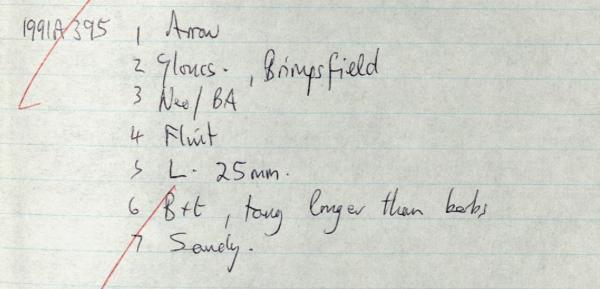 1991A/395 1 Arrow
2 Gloucs. , Brimpsfield
3 Neo/BA
4 Flint
5 L. 25mm.
6 B+t, tang longer than barbs
7 Sandy.